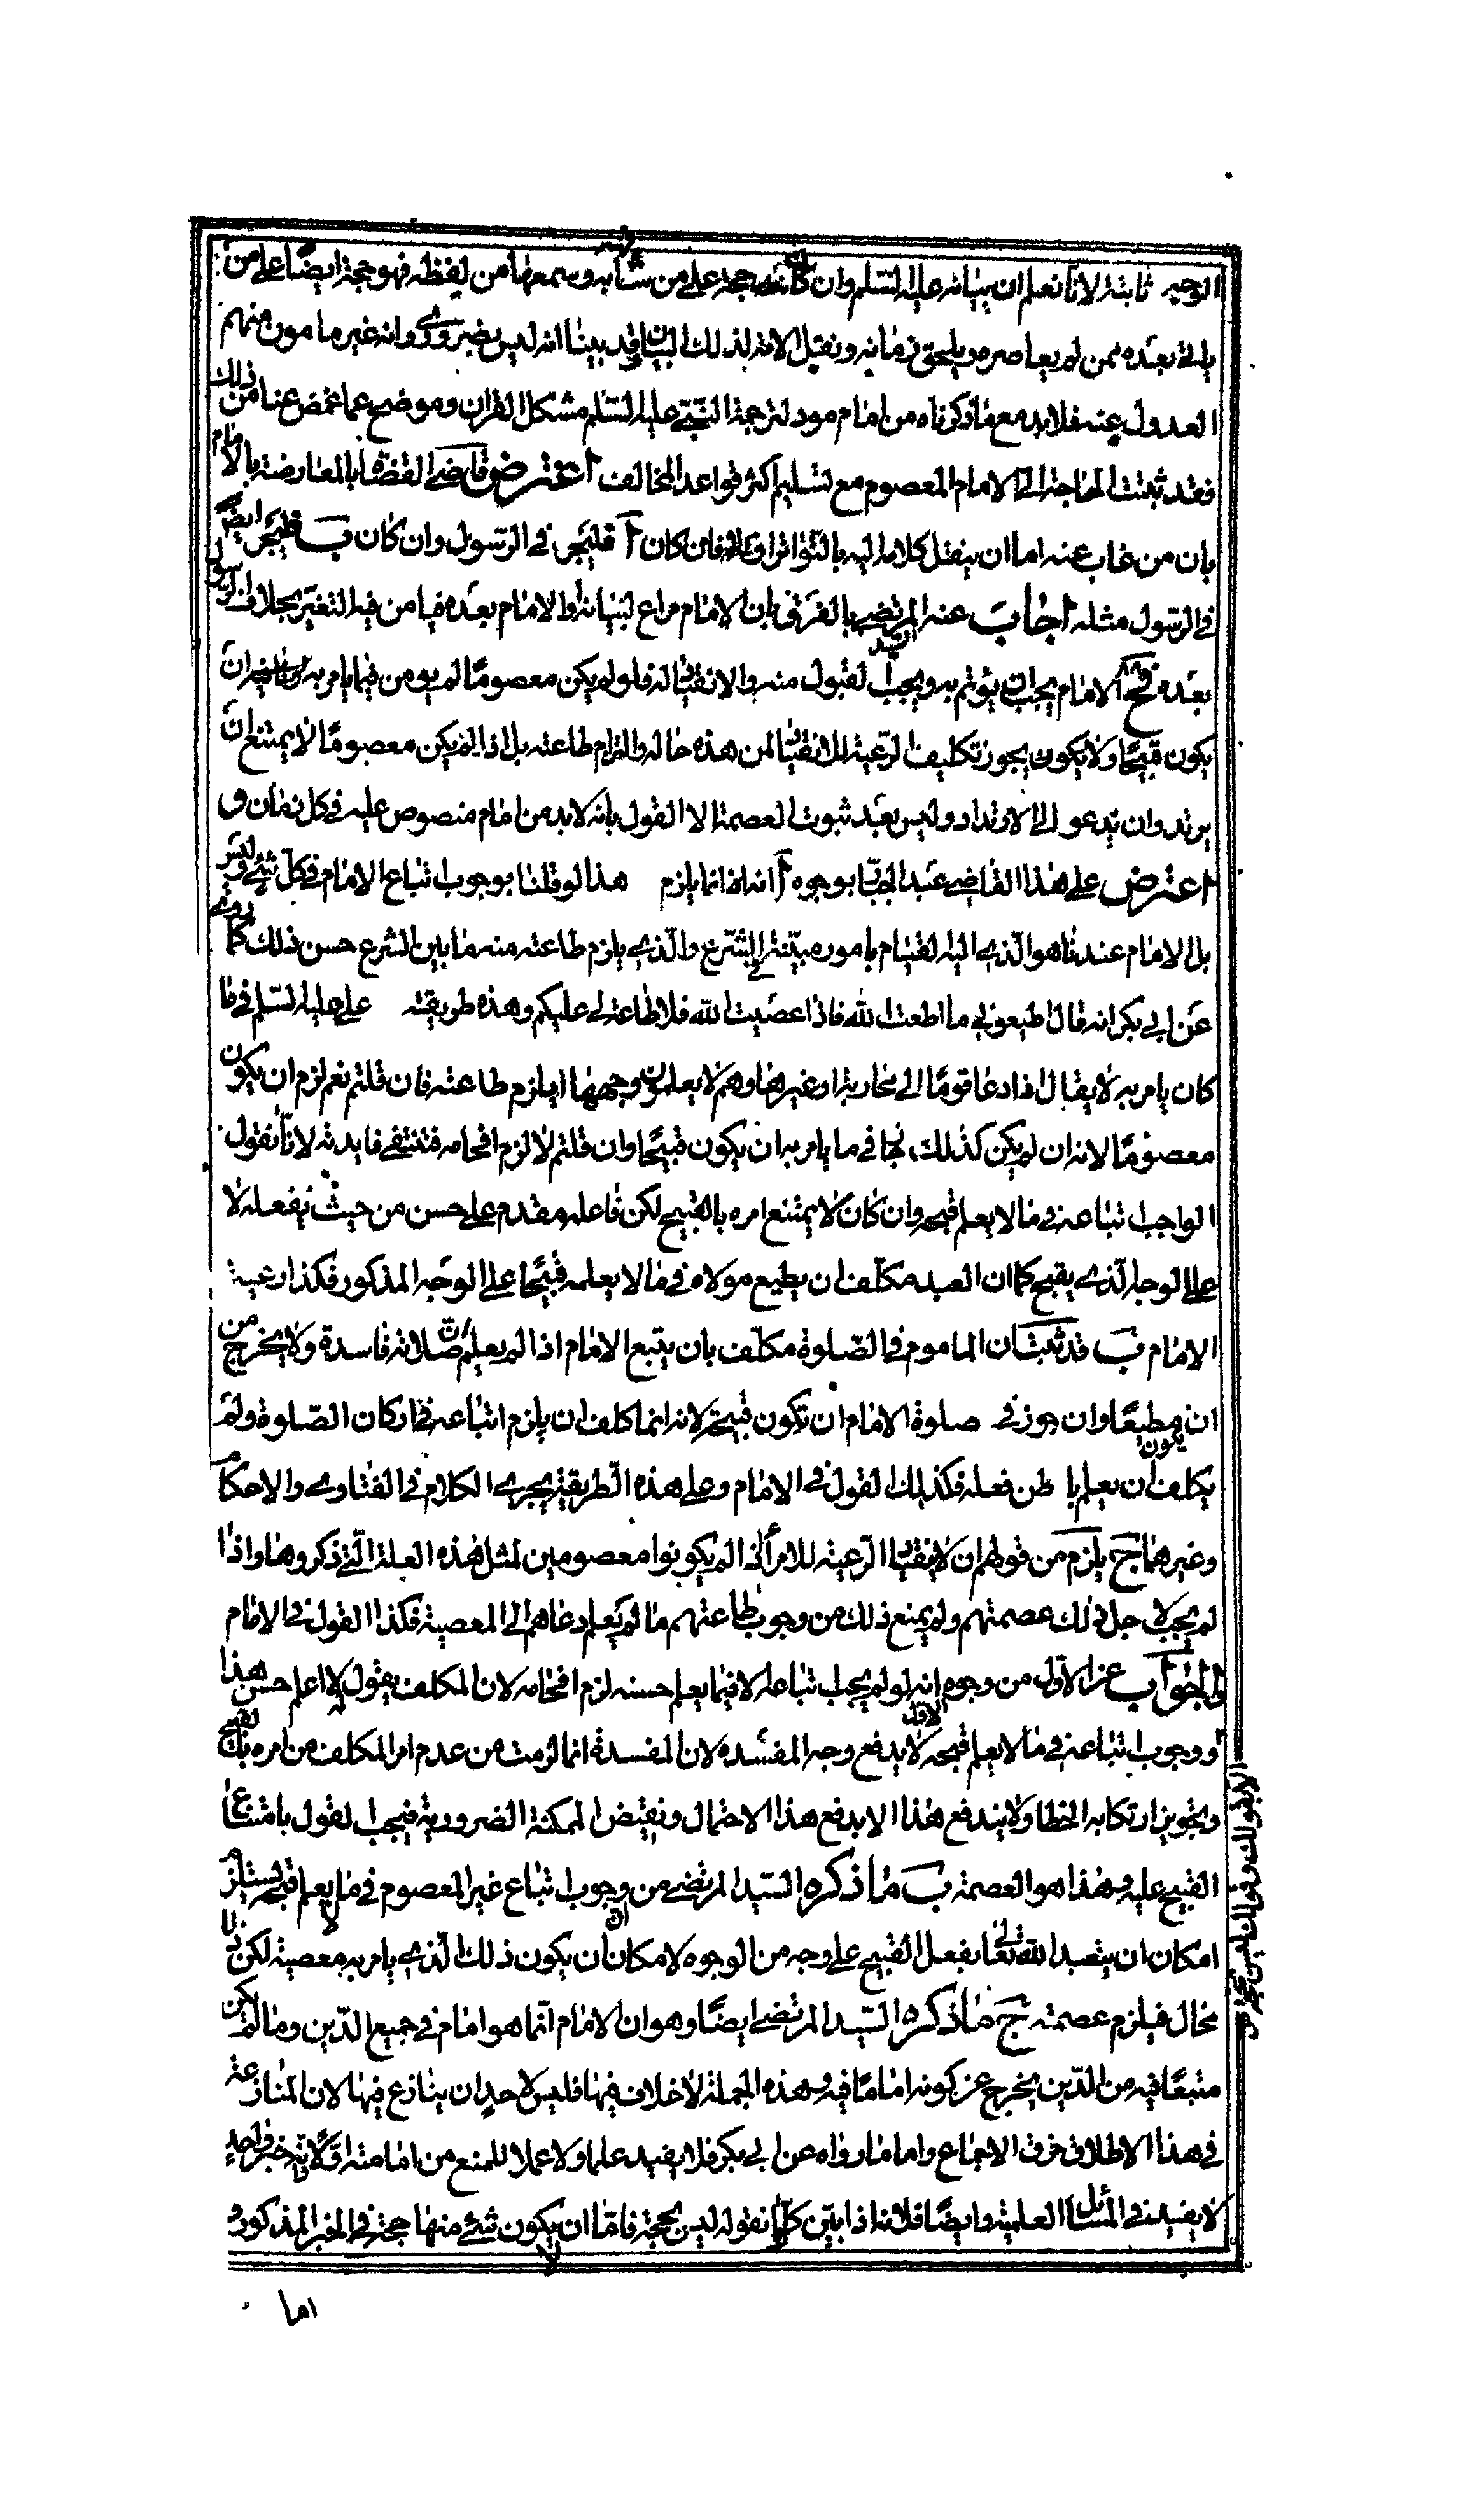 الوجيه ثابتة لانا نعلم ان بيانه عليه السلم وان كان حجة على من شافهه وسمعها من لفظه فهو حجة ايضا على من
ياتي بعده ممن لم يعاصره ويلحق زمانه ونقل الامة لذلك البيان قد بينا انه ليس بضروري وانه غير مامون منهم
العدول عنه فلابد مع ما ذكرناه من امام مود لترجمة النبي عليه السلم مشكل القران وموضح عما غمض عنا من ذلك
فقد ثبتت الحاجة الى الامام المعصوم مع تسليم اكثر قواعد المخالف اعترض قاضي القضاة بالمعارضة بالامام
بان من غاب عنه اما ان ينقل كلامه اليه بالتواتر او فان كان آ فليجز في الرسول وان كان ب فليجز ايضا
في الرسول مثله اجاب عنه السيد المرتضى بالفرق بان الامام مراع لبيانه والامام بعده فيامن فيه التغير بخلاف الرسول
بعده الامام يجب ان يؤتم به ويجب القبول منه والانقياد له فلو لم يكن معصوما لم يومن فيما يامر به ان
يكون قبيحا ولا يكون يجوز تكليف الرعية الانقياد لمن هذه حاله والتزام طاعته بل اذا لم يكن معصوما لا يمتنع ان
يرتد وان يدعو الى الارتداد وليس بعد ثبوت العصمة الا القول بانه لابد من امام منصوص عليه في كل زمان و
اعترض على هذا القاضي عبد الجبار بوجوه آ انه انما يلزم هذا لو قلنا بوجوب اتباع الامام في كل شيء وليس
بل الامام عندنا هو الذي اليه القيام بامور مبينة في الشرع والذي يلزم طاعته منه ما بين الشرع حسن ذلك كما روي
عن ابي بكر انه قال اطيعوني ما اطعت الله فاذا عصيت الله فلا طاعة لي عليكم وهذه طريقة علي عليه السلم في ما
كان يامر به لا يقال اذا دعا قوما الى محاربة او غيرها وهم لا يعلمون وجهها ايلزم طاعته فان قلتم نعم لزم ان يكون
معصوما لانه ان لم يكن كذلك في ما يامر به ان يكون قبيحا وان قلتم لا لزم افحامه فتنتفي فايدته لانا نقول
الواجب اتباعه في ما لا يعلم قبحه وان كان لا يمتنع امره بالقبيح لكن فاعله مقدم على حسن من حيث يفعله لا
على الوجه الذي يقبح كما ان العبد مكلف ان يطيع مولاه في ما لا يعلمه قبيحا على الوجه المذكور فكذا رعية
الامام ب قد ثبت ان الماموم في الصلوة مكلف بان يتبع الامام اذا لم يعلم ان صلاته فاسدة ولا يخرج من
ان يكون مطيعا وان جوز في صلوة الامام ان تكون قبيحة لانه انما كلف ان يلزم اتباعه في اركان الصلوة ولم
يكلف ان يعلم باطن فعله فكذلك القول في الامام وعلى هذه الطريقة يجري الكلام في الفتاوى والاحكام
وغيرهما ج يلزم من قولهم ان لا ينقاد الرعية للامرأ اذا لم يكونوا معصومين لمثل هذه العلة التي ذكروها واذا
لم يجب لاجل ذلك عصمتهم ولم يمنع ذلك من وجوب طاعتهم ما لم يعلم دعاهم الى المعصية فكذا القول في الامام
والجواب عن الاول من وجوه آ انه لو لم يجب اتباعه الا فيما يعلم حسنه لزم افحامه لان المكلف يقول له لا اعلم حسن هذا
ووجوب اتباعه في ما لا يعلم قبحه لا يدفع وجه المفسدة لان المفسدة انما لزمت من عدم امن المكلف من امره بالقبيح
وتجويز ارتكابه الخطا ولا يندفع هذا الا بدفع هذا الاحتمال ونقيض الممكنة الضرورية فيجب القول بامتناع
القبيح عليه وهذا هو العصمة ب ما ذكره السيد المرتضى من وجوب اتباع غير المعصوم في ما لا يعلم قبحه يستلزم
امكان ان يتعبد الله تعالى بفعل القبيح على وجه من الوجوه لامكان ان يكون ذلك الذي يامر به معصية لكن التالي
محال فيلزم عصمته ج ما ذكره السيد المرتضى ايضا وهو ان الامام انما هو امام في جميع الدين وما لم يكن
متبعا فيه من الدين يخرج عن كونه اماما فيه وهذه الجملة لا خلاف فيها فليس لاحد ان ينازع فيها لان المنازعة
في هذا الاطلاق خرق الاجماع واما ما رواه عن ابي بكر فلا يفيد علما ولا عملا للمنع من امامته اولا خبر واحد
لا يفيد في المسائل العلمية وايضا فلانه اذا بين ان كلما نقوله ليس بحجة فاما ان لا يكون شيء منها حجة في الخبر المذكور و
اما